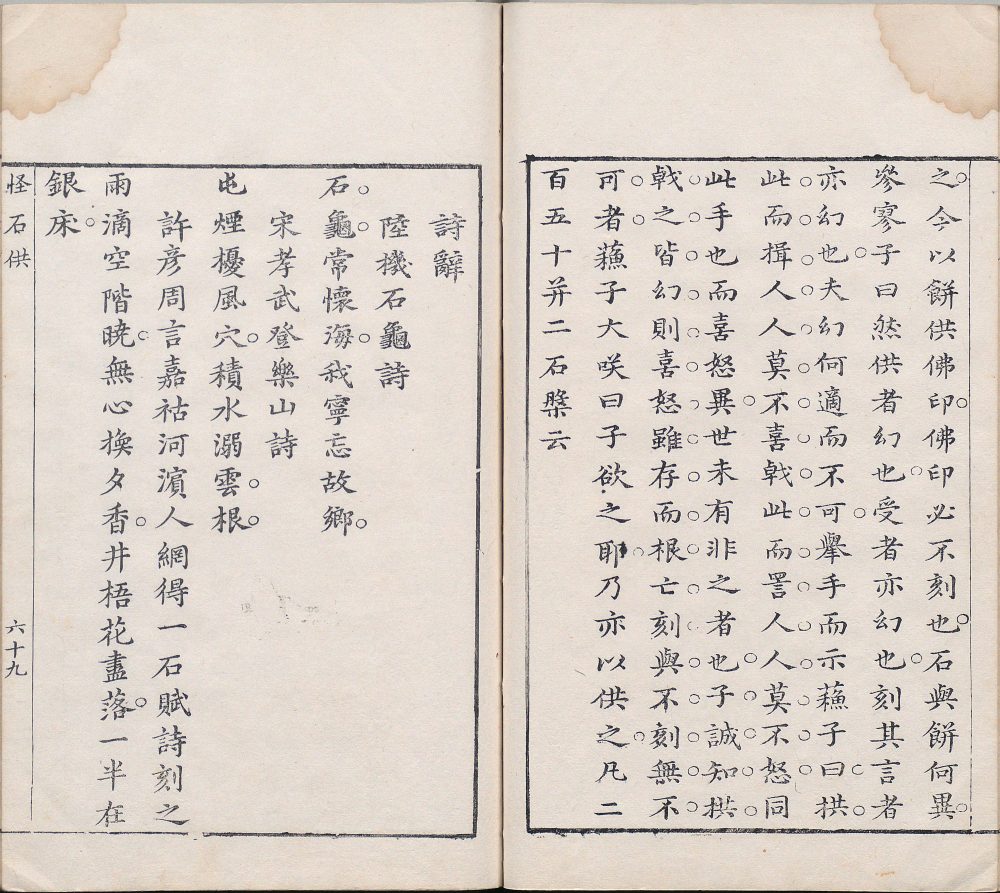 之今以餅供佛印佛印必不刻也石與餅何異
參寥子曰然供者幻也受者亦幻也刻其言者
亦幻也夫幻何適而不可舉手而示蘓子曰拱
此而揖人人莫不喜戟此而詈人人莫不怒同
此手也而喜怒異世未有非之者也子誠知拱
戟之皆幻則喜怒雖存而根亡刻與不刻無不
可者蘓子大咲曰子欲之耶乃亦以供之凡二
百五十并二石槃云
詩辭
陸機石龜詩
石龜常懷海我寧忘故鄉
宋孝武登樂山詩
屯煙擾風穴積水溺雲根
許彥周言嘉祜河濵人網得一石賦詩刻之
雨滴空階曉無心換夕香井梧花盡落一半在
銀床
怪石供
六十九